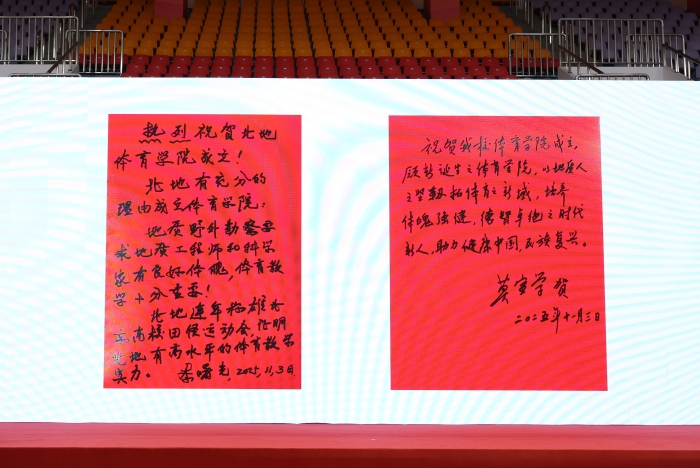 热烈祝贺北地
体育学院成立！
北地有充分的
理由成立体育学院：
地质野外勘察要
求地质工程师和科学
家有良好体魄，体育教
学十分重要！
北地连年称雄北
京高校田径运动会证明
北地有高水平的体育教学
实力。 李曙光，2025,11,3日
祝贺我校体育学院成立，
愿新诞生之体育学院，以地质人
之坚韧拓体育之新域，培养
体魄强健，德智卓绝之时代
新人，助力健康中国，民族复兴。
莫宣学 贺
二〇二五年十一月三日